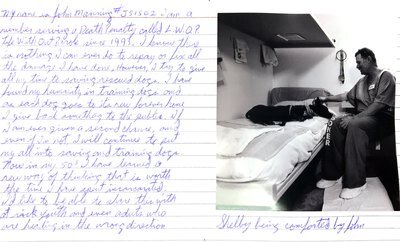 My name is John Manning # J51502 I am a
member serving a Death Penalty called L.W.O.P.
Life With Out Parole since 1993. I know there
is nothing I can ever do to repay or fix all
the damage I have done. However, I try to give
all my time to saving rescued dogs. I have
found my humanity in training dogs and
as each dog goes to its new forever home
I give back something to the public. If
I am ever given a second chance, and
even if not I will continue to put
my all into saving and training dogs.
Now in my 50's I have learned a
new way of thinking that is worth
the time I've spent incarcerated.
I'd like to be able to share this with
at risk youth and even adults who
are heading in the wrong direction
Shelby being comforted by John